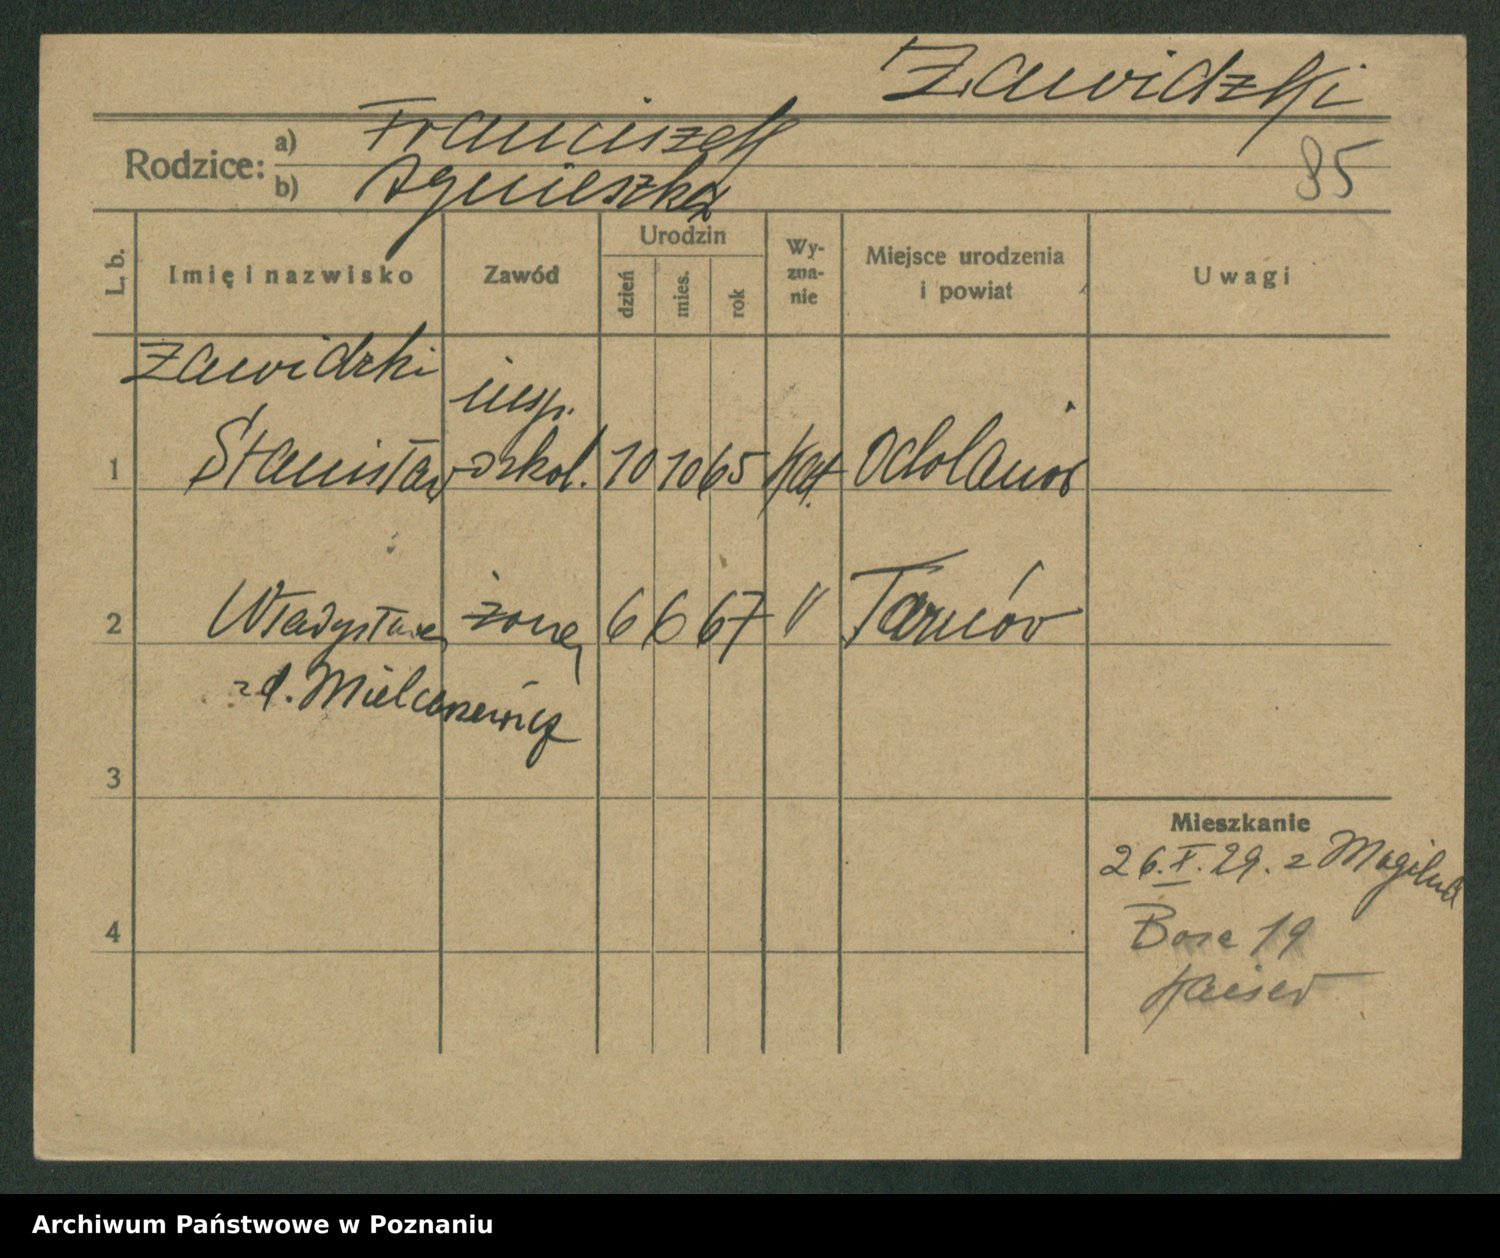 Zawidzki
Rodzice: a) Franciszek
b) Agnieszka
85
L. b.
Imię i nazwisko
Zawód
Urodzin
dzień
mies.
rok
Wy-
zna-
nie
Miejsce urodzenia
i powiat
Uwagi
Zawidzki
insp.
1 Stanisław szkol. 10 10 65 kat. Odolanów
2 Władysława żona 6 6 67 " Tarnów
z d. Mielcarzewicz
3
Mieszkanie
26.X.29. z
4
19
Archiwum Państwowe w Poznaniu